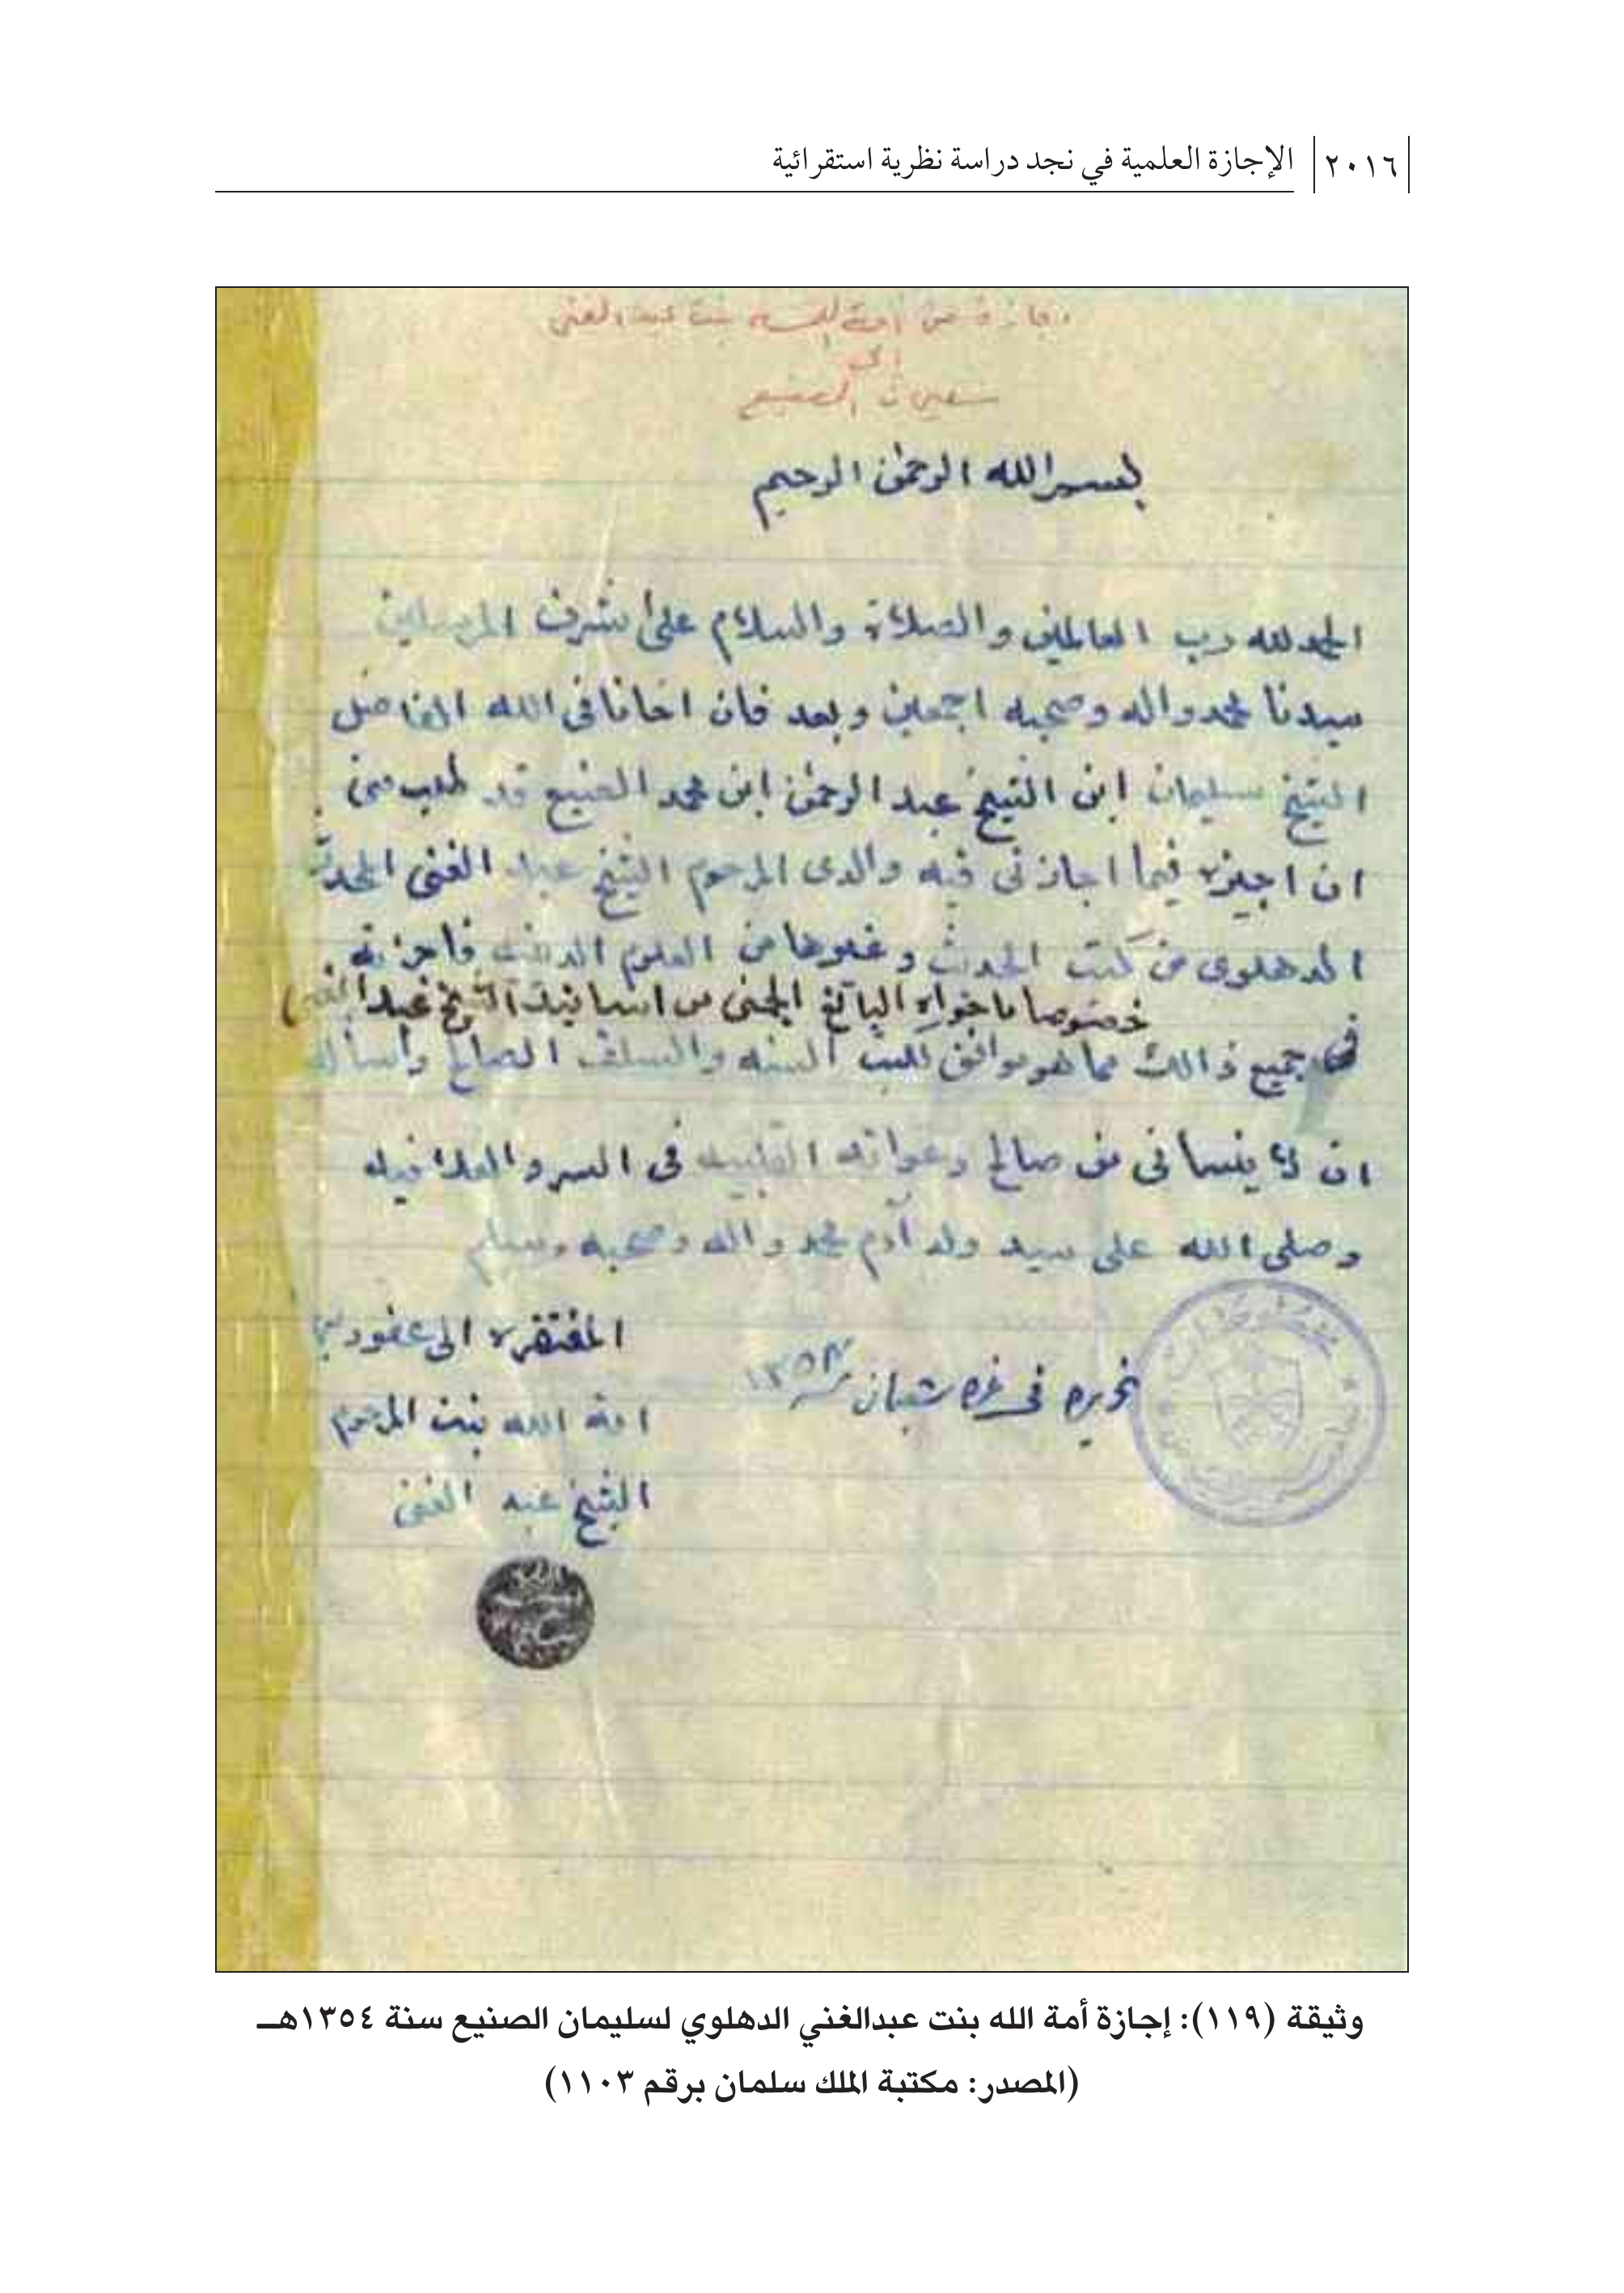 ٢٠١٦ الإجازة العلمية في نجد دراسة نظرية استقرائية
اجازة من امة الله بنت عبد الغني
إلى
سليمان الصنيع
بسم الله الرحمن الرحيم
الحمد لله رب العالمين والصلاة والسلام على اشرف المرسلين
سيدنا محمد واله وصحبه اجمعين وبعد فان اخانا في الله الفاضل
الشيخ سليمان ابن الشيخ عبد الرحمن ابن محمد الصنيع قد طلب منى
ان اجيزه فيما اجازنى فيه والدى المرحوم الشيخ عبد الغنى المحدث
الدهلوى من كتب الحديث وغيرها من العلوم الدينيه فاجزته
خصوصا ما حواه اليانع الجنى من اسانيد الشيخ عبد الغنى
فى جميع ذالك مما هو موافق للسنه والسلف الصالح وأسأله
ان لا ينسانى من صالح دعواته القلبيه فى السر والعلانيه
وصلى الله على سيد ولد آدم محمد واله وصحبه وسلم
المفتقره الى عفو ربها
تحريره فى غره شعبان ١٣٥٤
امة الله بنت المرحوم
الشيخ عبد الغنى
وثيقة (١١٩): إجازة أمة الله بنت عبدالغني الدهلوي لسليمان الصنيع سنة ١٣٥٤هـ
(المصدر: مكتبة الملك سلمان برقم ١١٠٣)